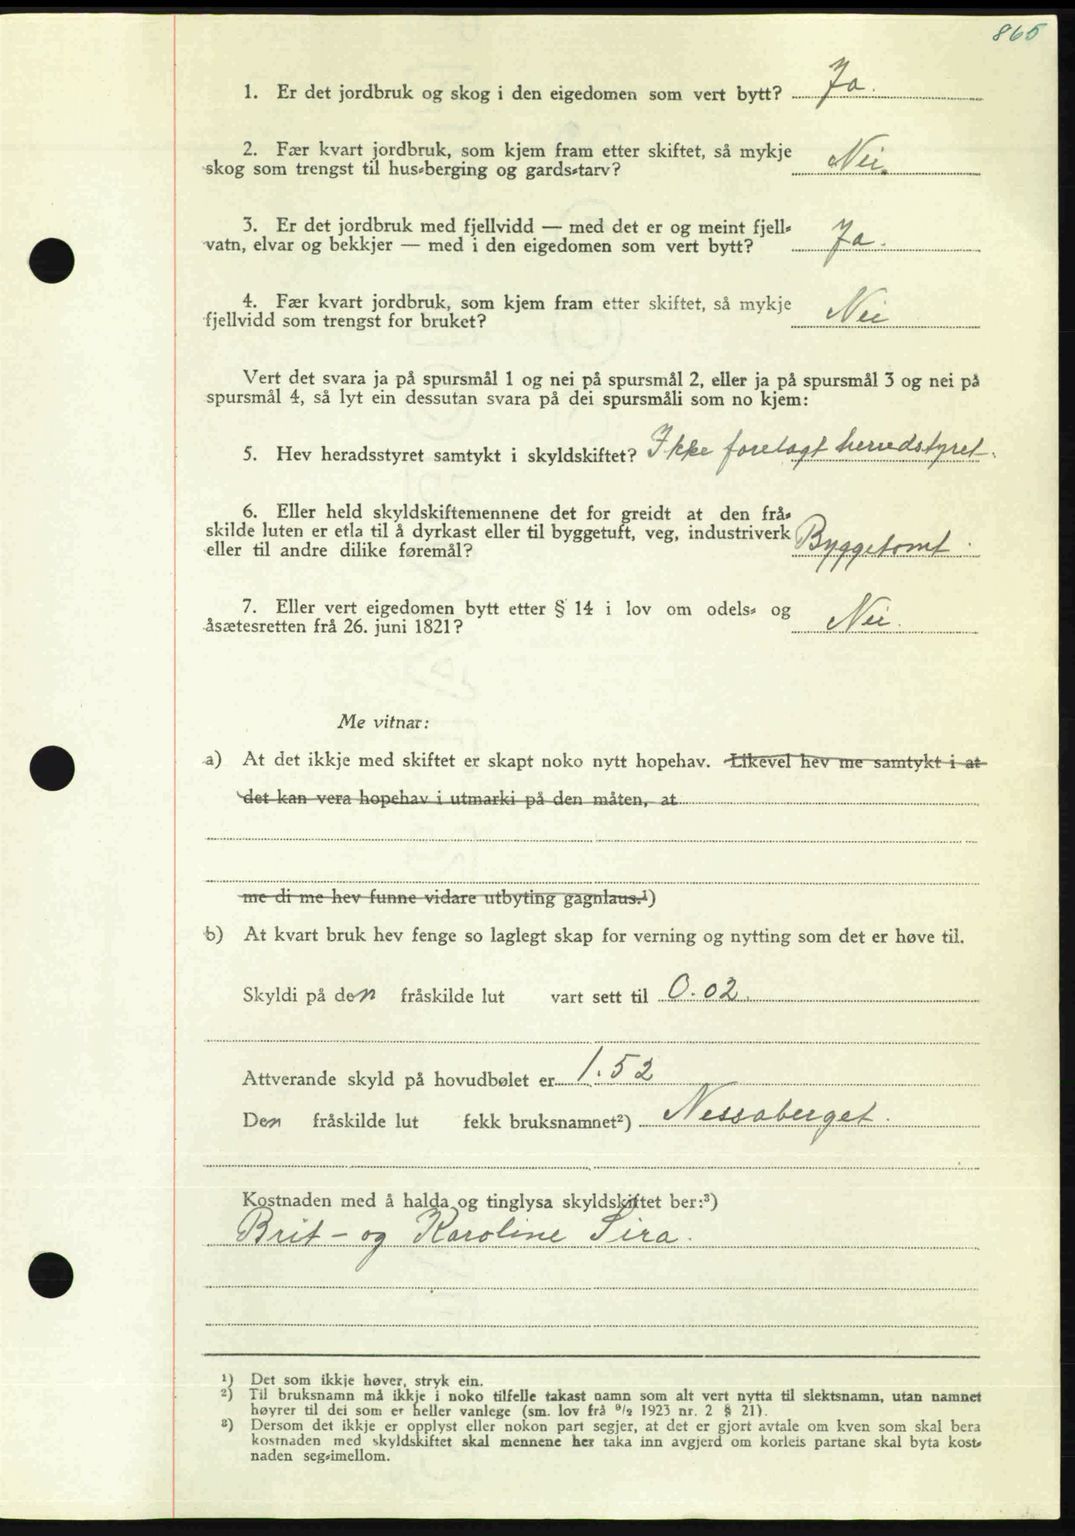 865
1. Er det jordbruk og skog i den eigedomen som vert bytt? Ja.
2. Fær kvart jordbruk, som kjem fram etter skiftet, så mykje
skog som trengst til hus-berging og gards-tarv? Nei.
3. Er det jordbruk med fjellvidd — med det er og meint fjell-
vatn, elvar og bekkjer — med i den eigedomen som vert bytt? Ja.
4. Fær kvart jordbruk, som kjem fram etter skiftet, så mykje
fjellvidd som trengst for bruket? Nei
Vert det svara ja på spursmål 1 og nei på spursmål 2, eller ja på spursmål 3 og nei på
spursmål 4, så lyt ein dessutan svara på dei spursmåli som no kjem:
5. Hev heradsstyret samtykt i skyldskiftet? Ikke forelagt herredstyret.
6. Eller held skyldskiftemennene det for greidt at den frå-
skilde luten er etla til å dyrkast eller til byggetuft, veg, industriverk
eller til andre dilike føremål? Byggetomt.
7. Eller vert eigedomen bytt etter § 14 i lov om odels- og
åsætesretten frå 26. juni 1821? Nei.
Me vitnar:
a) At det ikkje med skiftet er skapt noko nytt hopehav. Likevel hev me samtykt i at
det kan vera hopehav i utmarki på den måten, at
me di me hev funne vidare utbyting gagnlaus.¹)
b) At kvart bruk hev fenge so laglegt skap for verning og nytting som det er høve til.
Skyldi på den fråskilde lut vart sett til 0.02.
Attverande skyld på hovudbølet er 1.52
Den fråskilde lut fekk bruksnamnet²) Nessaberget.
Kostnaden med å halda og tinglysa skyldskiftet ber:³)
Brit - og Karoline Sira.
¹) Det som ikkje høver, stryk ein.
²) Til bruksnamn må ikkje i noko tilfelle takast namn som alt vert nytta til slektsnamn, utan namnet
høyrer til dei som er heller vanlege (sm. lov frå ⁹/₂ 1923 nr. 2 § 21).
³) Dersom det ikkje er opplyst eller nokon part segjer, at det er gjort avtale om kven som skal bera
kostnaden med skyldskiftet skal mennene her taka inn avgjerd om korleis partane skal byta kost-
naden seg-imellom.